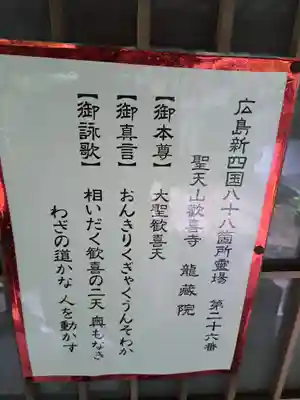 広島新四国八十八箇所霊場　第二十六番
聖天山歓喜寺　龍蔵院
【御本尊】　大聖歓喜天
【御真言】　おんきりくぎゃくうんそわか
【御詠歌】　相いだく歓喜の二天 奥もなき
わざの道かな 人を動かす